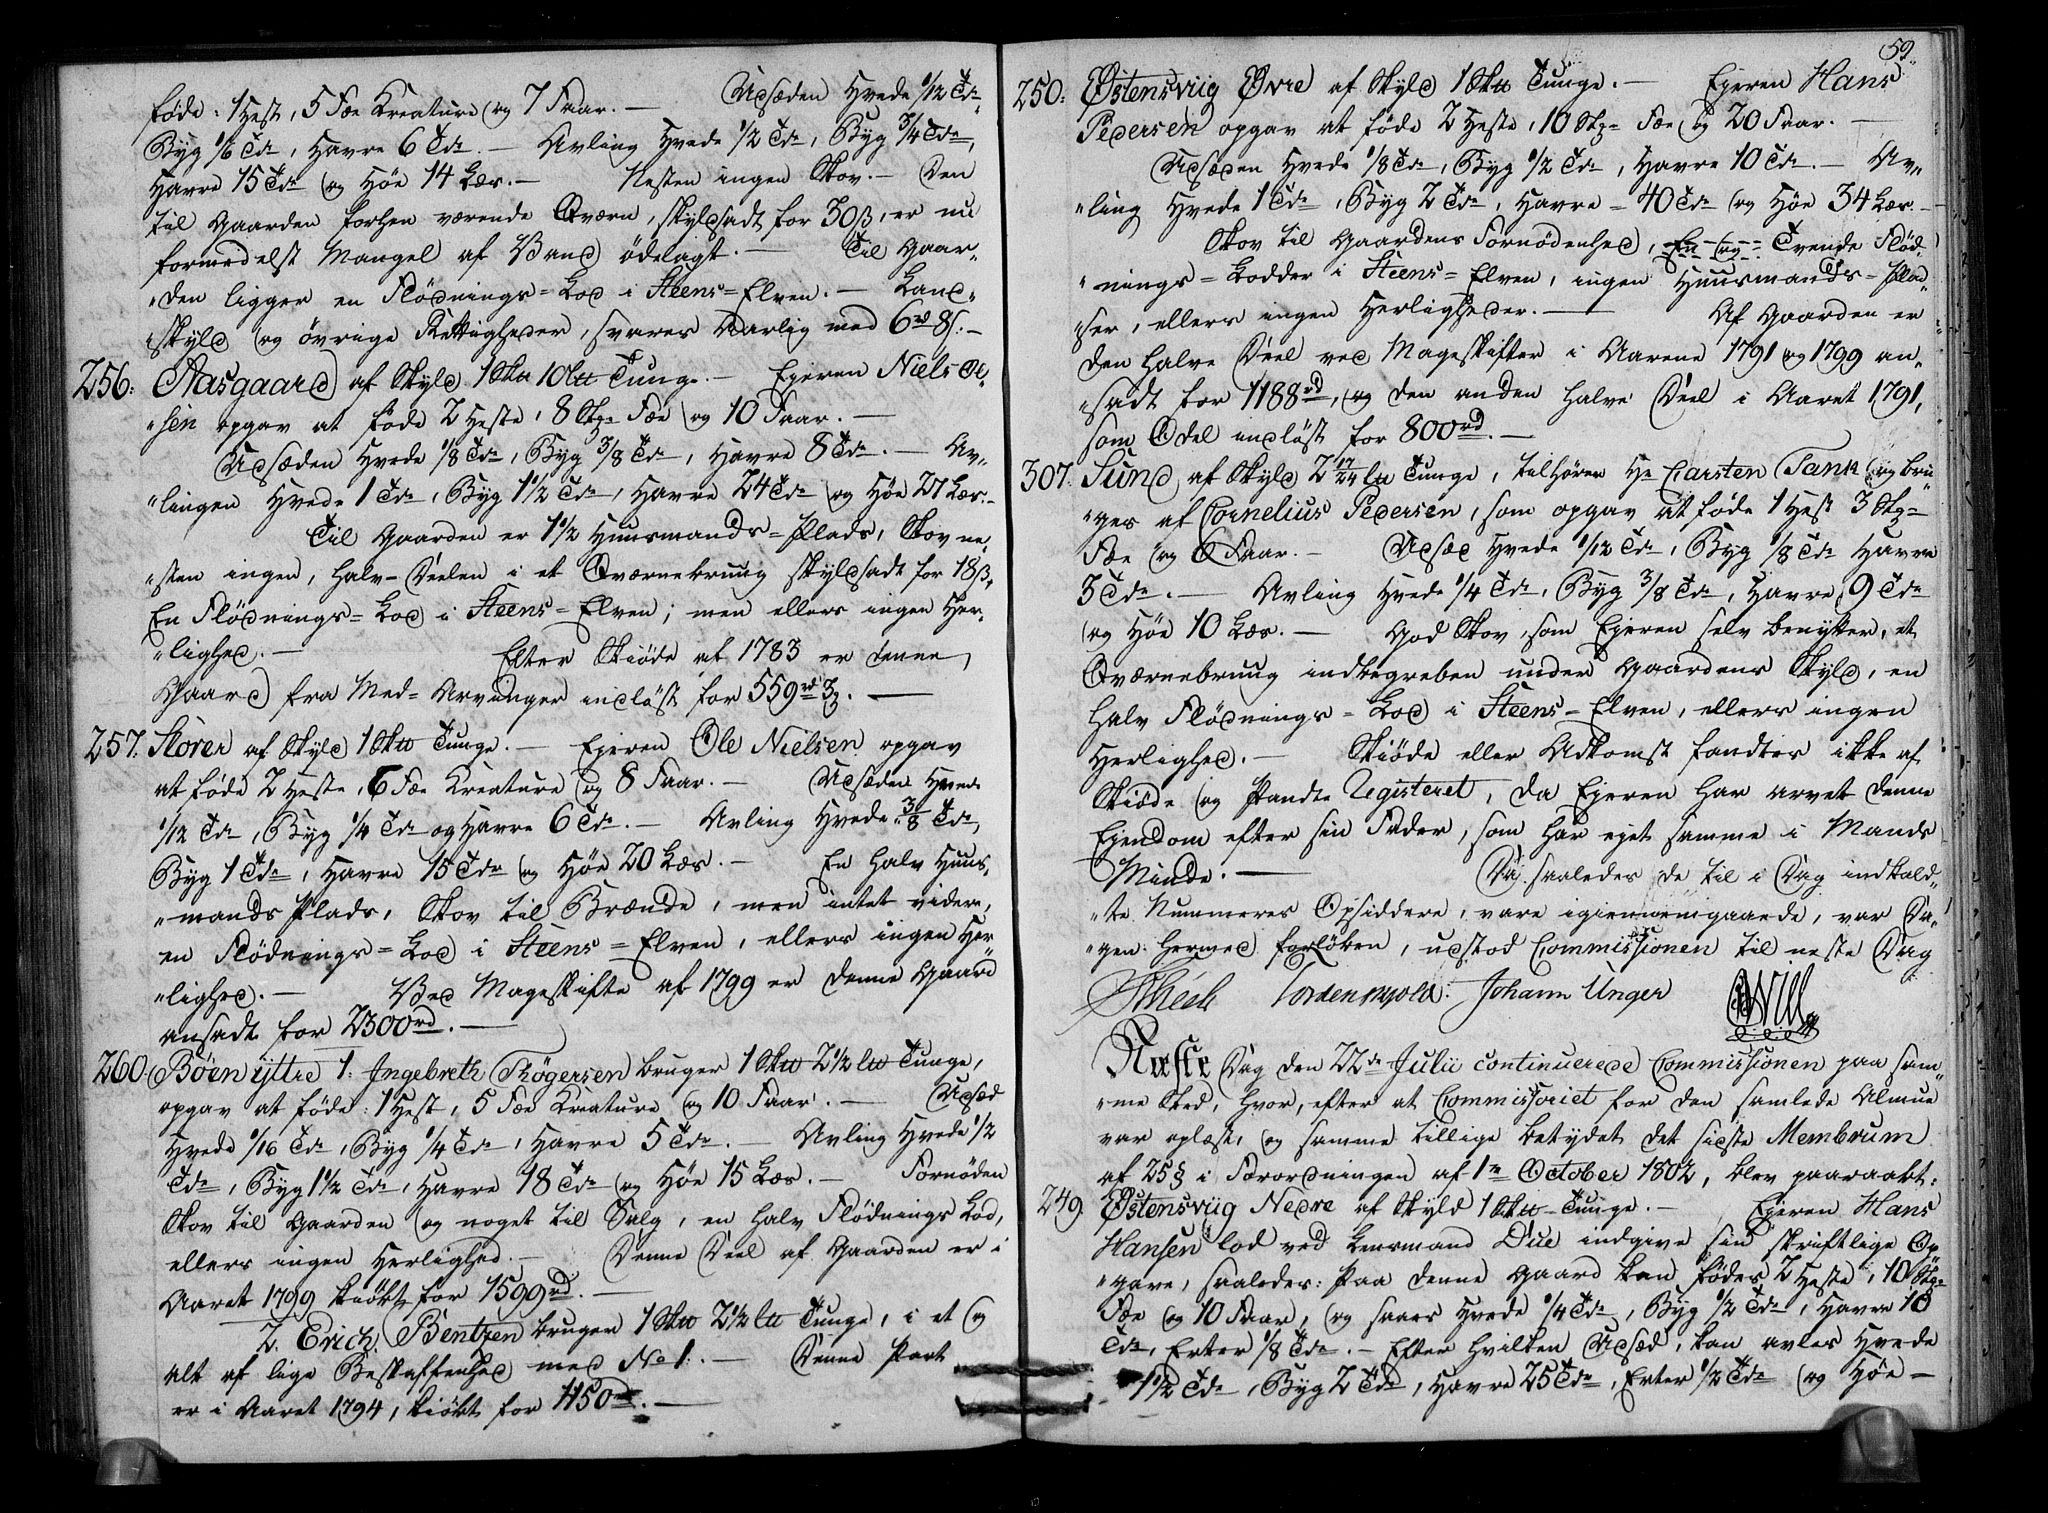 føde: 1 Hest, 5 Fæe Kreature og 7 Faar. — Udsæden Hvede 1/12 Tde
Byg 1/6 Tde, Havre 6 Tde. — Avling Hvede 1/2 Tde, Byg 3/4 Tde,
Havre 15 Tdr og Høe 14 Læs. — Nesten ingen Skov. — Den
til Gaarden forhen værende Qværn, skyldsadt for 30ß, er nu
formedelst Mangel af Vand ødelagt. — Til Gaar„
„den ligger en Flødnings=Lod i Steens=Elven. — Land„
„skyld og øvrige Rettigheder, svares Aarlig med 6rd 8ß. —
256: Aasgaard af Skyld 1 Sku 10 lu Tunge. — Ejeren Niels Ol„
„sen opgav at føde 2 Heste, 8 Stkr Fæe og 10 Faar. —
Udsæden Hvede 1/8 Tde, Byg 3/8 Tde, Havre 8 Tdr. — Av„
„lingen Hvede 1 Tde, Byg 1 1/2 Tde, Havre 24 Tdr og Høe 27 Læs. —
Til Gaarden er 1 1/2 Huusmands=Plads, Skov ne„
„sten ingen, halv-Deelen i et Qværnebruug skyldsadt for 18ß.
En Flødnings=Lod i Steens=Elven; men ellers ingen Her„
„lighed. — Efter Skiøde af 1783 er denne
Gaard fra Med=Arvinger indløst for 559rd 3ß. —
257. Storer af Skyld 1 Sku Tunge. — Ejeren Ole Nielsen opgav
at føde 2 Heste, 6 Fæe Kreature og 8 Faar. — Udsæden Hvede
1/12 Tde, Byg 1/4 Tde og Havre 6 Tdr. — Avling Hvede 3/8 Tde,
Byg 1 Tde, Havre 15 Tdr og Høe 20 Læs. — En halv Huus„
„mands Plads, Skov til Brænde, men intet videre,
en Flødnings=Lod i Steens=Elven, ellers ingen Her
„lighed. — Ved Mageskifte af 1799 er denne Gaard
ansadt for 2300rd. —
260. Bøen ijttre 1: Ingebreth Thøgersen bruger 1 Sku 2 1/2 lu Tunge,
opgav at føde: 1 Hest, 5 Fæe Kreature og 10 Faar. — Udsæd
Hvede 1/16 Tde, Byg 1/4 Tde, Havre 5 Tdr. — Avling Hvede 1/2
Tde, Byg 1 1/2 Tde, Havre 18 Tdr og Høe 15 Læs. — Fornøden
Skov til Gaarden og noget til Salg, en halv Flødnings Lod,
ellers ingen Herlighed. — Denne Deel af Gaarden er i
Aaret 1799 kiøbt for 1599rd. —
2. Erich Bentzen bruger 1 Sku 2 1/2 lu Tunge, i et og
alt af lige Beskaffenhed med No 1. — Denne Part
er i Aaret 1794, kiøbt for 1150rd. —
59.
250: Østensviig Øvre af Skyld 1 Sku Tunge. — Ejeren Hans
Pedersen opgav at føde 2 Heste, 10 Stkr Fæe og 20 Faar. —
Udsæden Hvede 1/8 Tde, Byg 1/2 Tde, Havre 10 Tdr. — Av„
„ling Hvede 1 Tde, Byg 2 Tdr, Havre 40 Tdr og Høe 34 Læs. —
Skov til Gaardens Fornødenhed, En og Tvende Flød„
„nings=Lodder i Steens=Elven, ingen Huusmands=Pla„
„ser, ellers ingen Herligheder. — Af Gaarden er
den halve Deel ved Mageskifter i Aarene 1791 og 1799 an„
„sadt for 1188rd, og den anden halve Deel i Aaret 1791,
som Odel indløst for 800rd. —
307. Sund af Skyld 2 17/24 lu Tunge, tilhører Hr Carsten Tank og bru„
„ges af Cornelius Pedersen, som opgav at føde 1 Hest 3 Stkr
Fæe og 6 Faar. — Udsæd Hvede 1/12 Tde, Byg 1/8 Tde Havre
3 Tdr. — Avling Hvede 1/4 Tde, Byg 3/8 Tde, Havre 9 Tdr
og Høe 10 Læs. — God Skov, som Ejeren selv benytter, et
Qværnebruug indbegreben under Gaardens Skyld, en
halv Flødnings=Lod i Steens=Elven, ellers ingen
Herlighed. — Skiøde eller Adkomst fandtes ikke af
Skiøde og Pandte Registeret, da Ejeren har arvet denne
Ejendom efter sin Fader, som har ejet samme i Mands
Minde. — Da saaledes de til i Dag indkald„
„te Nummeres Opsiddere, vare igiennemgaaede, var Da„
„gen hermed forløben, udstod Commissionen til neste Dag
Johann Unger
Næste Dag den 22de Julii continuerede Commissionen paa sam„
„me Sted, hvor, efter at Commissoriet for den samlede Almue
var oplæst, og samme tillige betydet det sidste Membrum
af 25§ i Forordningen af 1te October 1802, blev paaraabt:
249. Østensviig Nedre af Skyld 1 Sku Tunge. — Ejeren Hans
Hansen lod ved Lensmand Due indgive sin skriftlige Op„
„gave, saaledes: Paa denne Gaard kan fødes 2 Heste, 10 Stkr
Fæe og 10 Faar, og saaes Hvede 1/4 Tde, Byg 1/2 Tde, Havre 10
Tdr, Erter 1/8 Tde. — Efter hvilken Udsæd, kan avles Hvede
1 1/2 Tde, Byg 2 Tdr, Havre 25 Tdr, Erter 1/2 Tde og Høe —